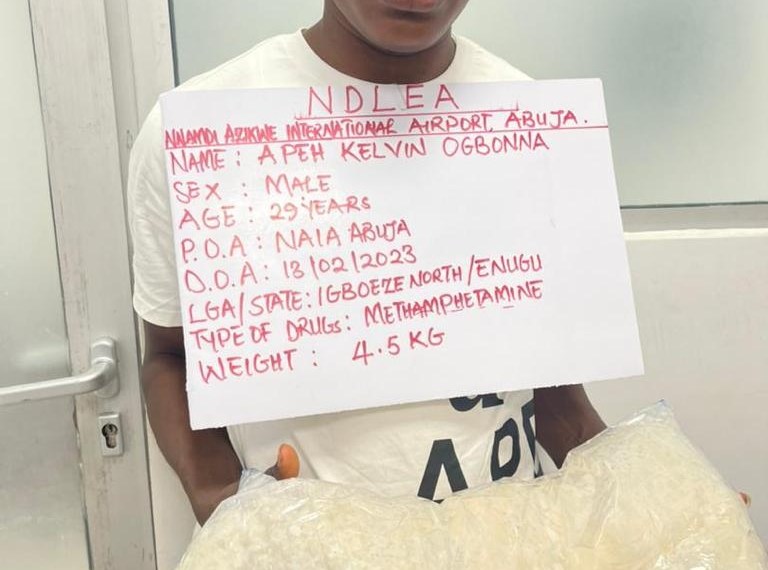 NDLEA
NNAMDI AZIKIWE INTERNATIONAL AIRPORT, ABUJA.
NAME : APEH KELVIN OGBONNA
SEX : MALE
AGE : 29 YEARS
P.O.A : NAIA ABUJA
D.O.A : 13/02/2023
LGA/STATE : IGBOEZE NORTH/ENUGU
TYPE OF DRUGS : METHAMPHETAMINE
WEIGHT : 4.5 KG